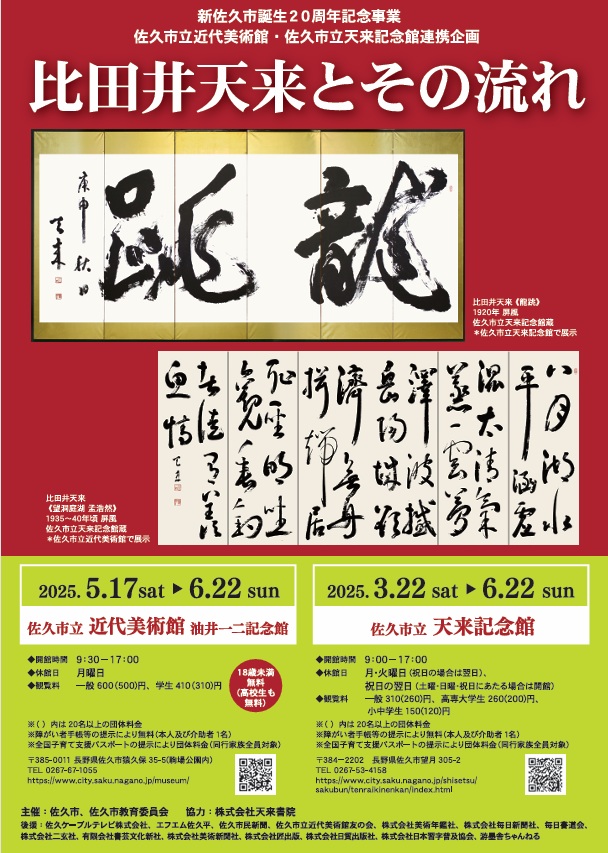 新佐久市誕生20周年記念事業
佐久市立近代美術館・佐久市立天来記念館連携企画
比田井天来とその流れ
龍跳
庚申秋日
天来
比田井天来《龍跳》
1920年 屏風
佐久市立天来記念館蔵
*佐久市立天来記念館で展示
八月湖水
平涵虚
混太清氣
蒸雲夢
澤波撼
岳陽城欲
濟無舟
楫端居
恥聖明坐
觀垂釣
者徒有羨
魚情
比田井天来
《望洞庭湖 孟浩然》
1935〜40年頃 屏風
佐久市立天来記念館蔵
*佐久市立近代美術館で展示
2025. 5.17 sat ▶ 6.22 sun
佐久市立 近代美術館 油井一二記念館
◆開館時間 9:30−17:00
◆休館日 月曜日
◆観覧料 一般 600(500)円、学生 410(310)円
18歳未満
無料
(高校生も
無料)
※( )内は20名以上の団体料金
※障がい者手帳等の提示により無料(本人及び介助者1名)
※全国子育て支援パスポートの提示により団体料金(同行家族全員対象)
〒385-0011 長野県佐久市猿久保 35-5(駒場公園内)
TEL 0267-67-1055
https://www.city.saku.nagano.jp/museum/
2025. 3.22 sat ▶ 6.22 sun
佐久市立 天来記念館
◆開館時間 9:00−17:00
◆休館日 月・火曜日(祝日の場合は翌日)、
祝日の翌日(土曜・日曜・祝日にあたる場合は開館)
◆観覧料 一般 310(260)円、高専大学生 260(200)円、
小中学生 150(120)円
※( )内は20名以上の団体料金
※障がい者手帳等の提示により無料(本人及び介助者1名)
※全国子育て支援パスポートの提示により団体料金(同行家族全員対象)
〒384−2202 長野県佐久市望月 305-2
TEL 0267-53-4158
https://www.city.saku.nagano.jp/shisetsu/
sakubun/tenraikinenkan/index.html
主催:佐久市、佐久市教育委員会 協力:株式会社天来書院
後援:佐久ケーブルテレビ株式会社、エフエム佐久平、佐久市民新聞、佐久市立近代美術館友の会、株式会社美術年鑑社、株式会社毎日新聞社、毎日書道会、
株式会社二玄社、有限会社書芸文化新社、株式会社美術新聞社、株式会社匠出版、株式会社日貿出版社、株式会社日本習字普及協会、游墨舎ちゃんねる